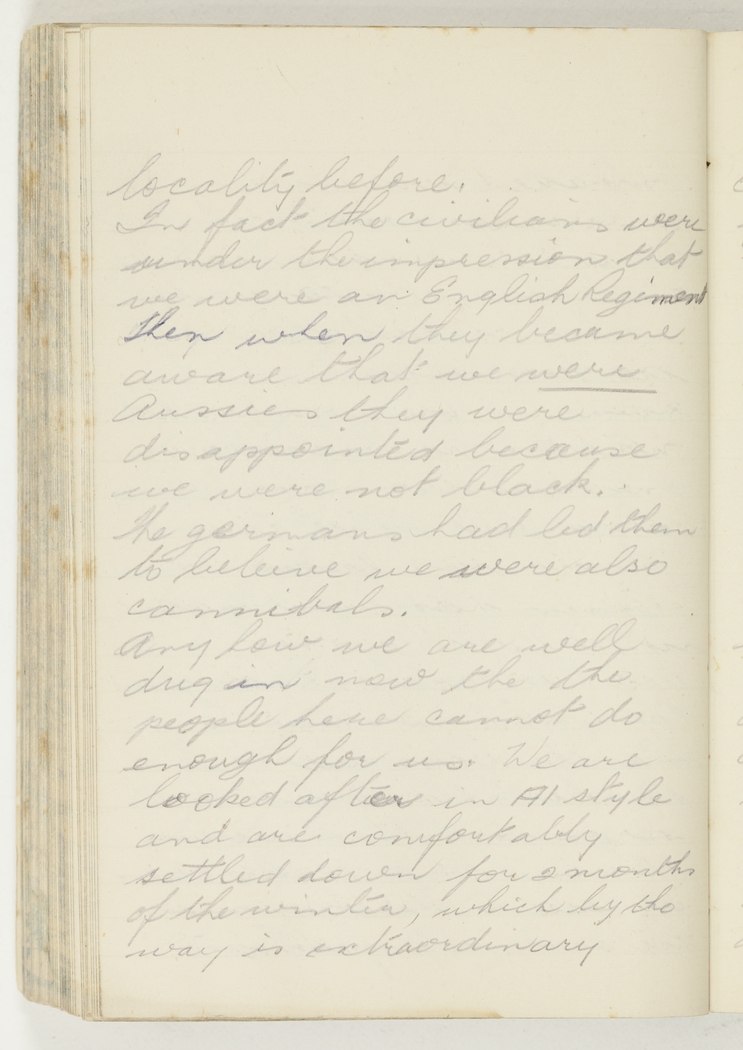 locality before.
In fact the civilians were
under the impression that
we were an English Regiment
then when they became
aware that we were
Aussies they were
disappointed because
we were not black.
The germans had led them
to beleive we were also
cannibals.
Any how we are well
dug in now the the
people here cannot do
enough for us. We are
looked after in A1 style
and are comfortably
settled down for 2 months
of the winter, which by the
way is extraordinary